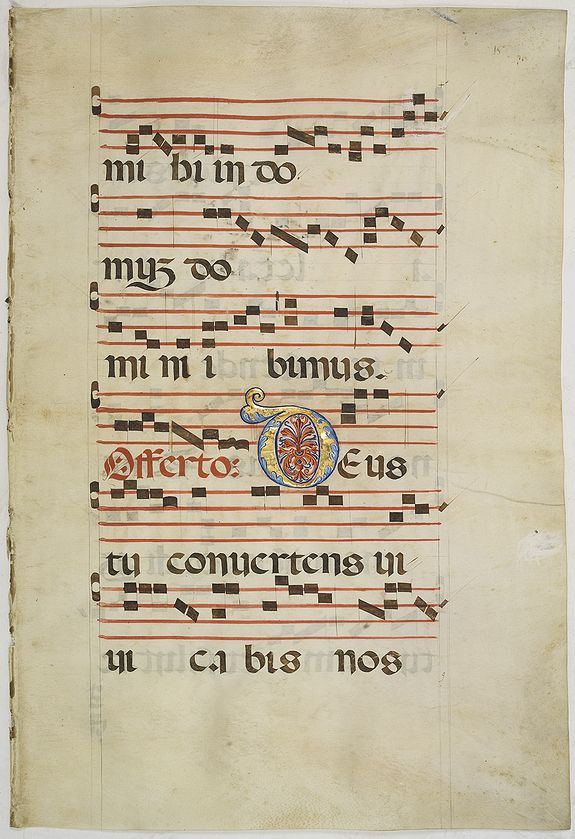 mi hi in do
muz do
mi ni i bimus.
Offerto: DEus
tu conuertens ui
ui ca bis nos